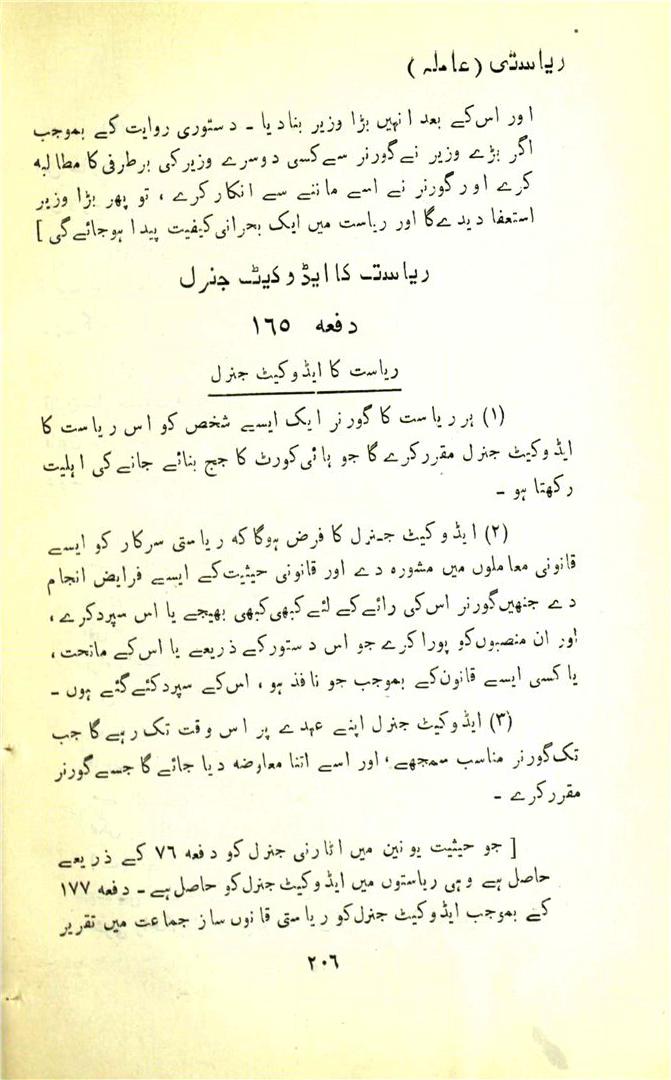 ریاستی (عاملہ)
اور اس کے بعد انہیں بڑا وزیر بنادیا ۔ دستوری روایت کے بموجب
اگر بڑے وزیر نے گورنر سے کسی دوسرے وزیر کی برطرفی کا مطالبہ
کرے اور گورنر نے اسے ماننے سے انکار کرے ، تو پھر بڑا وزیر
استعفا دیدے گا اور ریاست میں ایک بحرانی کیفیت پیدا ہوجائے گی ]
ریاست کا ایڈوکیٹ جنرل
دفعہ ١٦٥
ریاست کا ایڈوکیٹ جنرل
(١) ہر ریاست کا گورنر ایک ایسے شخص کو اس ریاست کا
ایڈوکیٹ جنرل مقرر کرے گا جو ہائی کورٹ کا جج بنائے جانے کی اہلیت
رکھتا ہو ۔
(٢) ایڈوکیٹ جنرل کا فرض ہوگا کہ ریاستی سرکار کو ایسے
قانونی معاملوں میں مشورہ دے اور قانونی حیثیت کے ایسے فرایض انجام
دے جنھیں گورنر اس کی رائے کے لئے کبھی کبھی بھیجے یا اس سپرد کرے ،
اور ان منصبوں کو پورا کرے جو اس دستور کے ذریعے یا اس کے ماتحت ،
یا کسی ایسے قانون کے بموجب جو نافذ ہو ، اس کے سپرد کئے گئے ہوں ۔
(٣) ایڈوکیٹ جنرل اپنے عہدے پر اس وقت تک رہے گا جب
تک گورنر مناسب سمجھے ، اور اسے اتنا معاوضہ دیا جائے گا جسے گورنر
مقرر کرے ۔
[ جو حیثیت یونین میں اٹارنی جنرل کو دفعہ ٧٦ کے ذریعے
حاصل ہے وہی ریاستوں میں ایڈوکیٹ جنرل کو حاصل ہے ۔ دفعہ ١٧٧
کے بموجب ایڈوکیٹ جنرل کو ریاستی قانوں ساز جماعت میں تقریر
٢٠٦